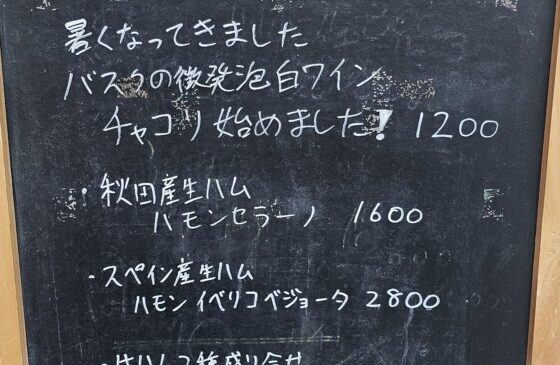 暑くなってきました
バスクの微発泡白ワイン
チャコリ始めました! 1200
・秋田産生ハム
ハモンセラーノ 1600
・スペイン産生ハム
ハモンイベリコベジョータ 2800
・生ハム2種盛り合せ